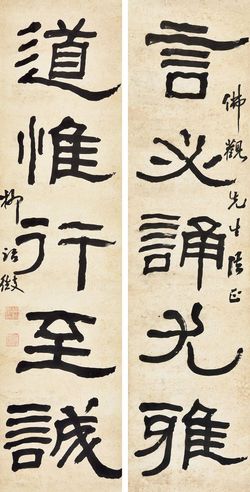 佛觀先生正
言必誦雅
道惟行至誠
柳詒徵